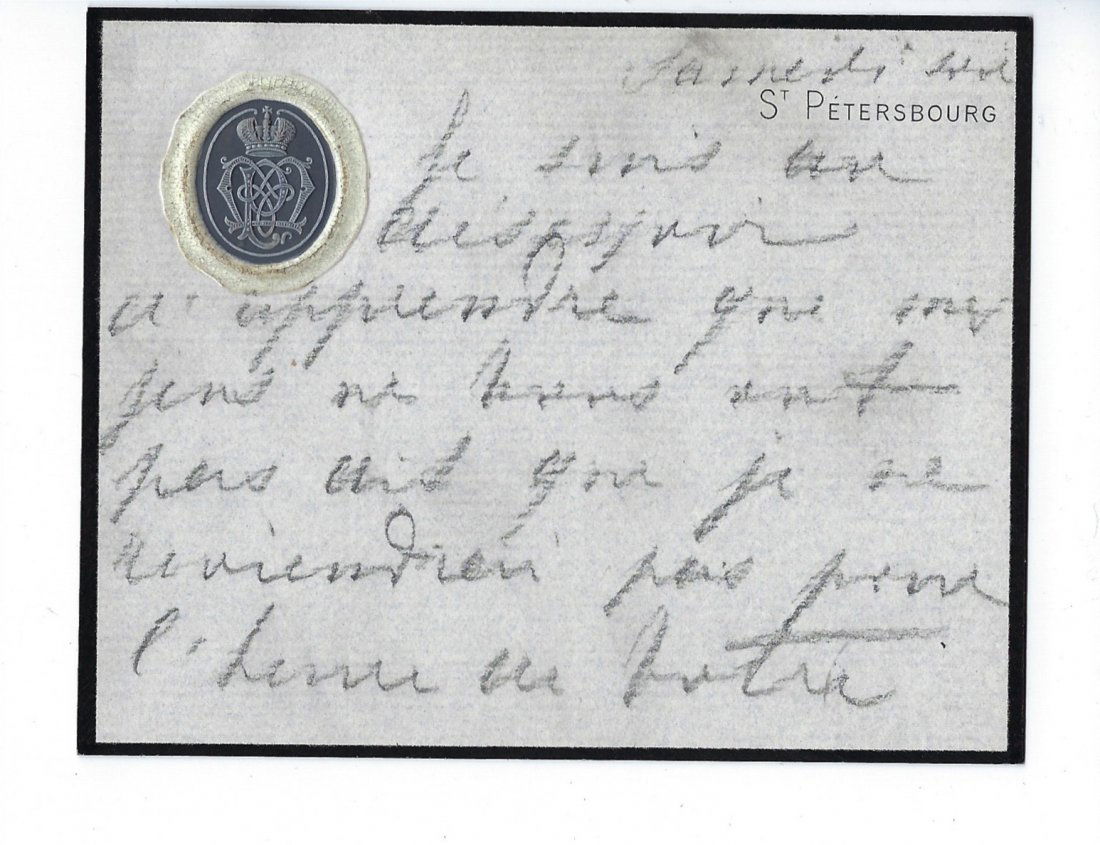 Samedi soir
ST PÉTERSBOURG
Je suis au
désespoir
d'apprendre que mes
gens ne vous ont
pas dit que je ne
reviendrai pas pour
l'heure de Votre